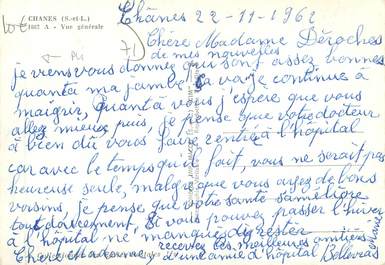 CHANES (S.-et-L.)
1067 A - Vue générale
10€
71
Chânes 22-11-1962
Chère Madame Déroches
je viens vous donner de mes nouvelles qui sont assez bonnes
quant à ma jambe sa va je continue à
maigrir, Quant à vous j'espère que vous
allez mieux puis, je pense que votre docteur
à bien dû vous faire rentrée à l'hôpital
car avec le temps qu'il fait, vous ne serait pas
heureuse seule, malgré que vous avez de bons
voisins, je pense que votre santé s'améliore
tout doucement, Si vous pouvez passer l'hiver
à l'hôpital ne manquez d'y rester
Chère Madame recevez les meilleures amitiés
d'une amie d'hopital Bellevias
Chânes